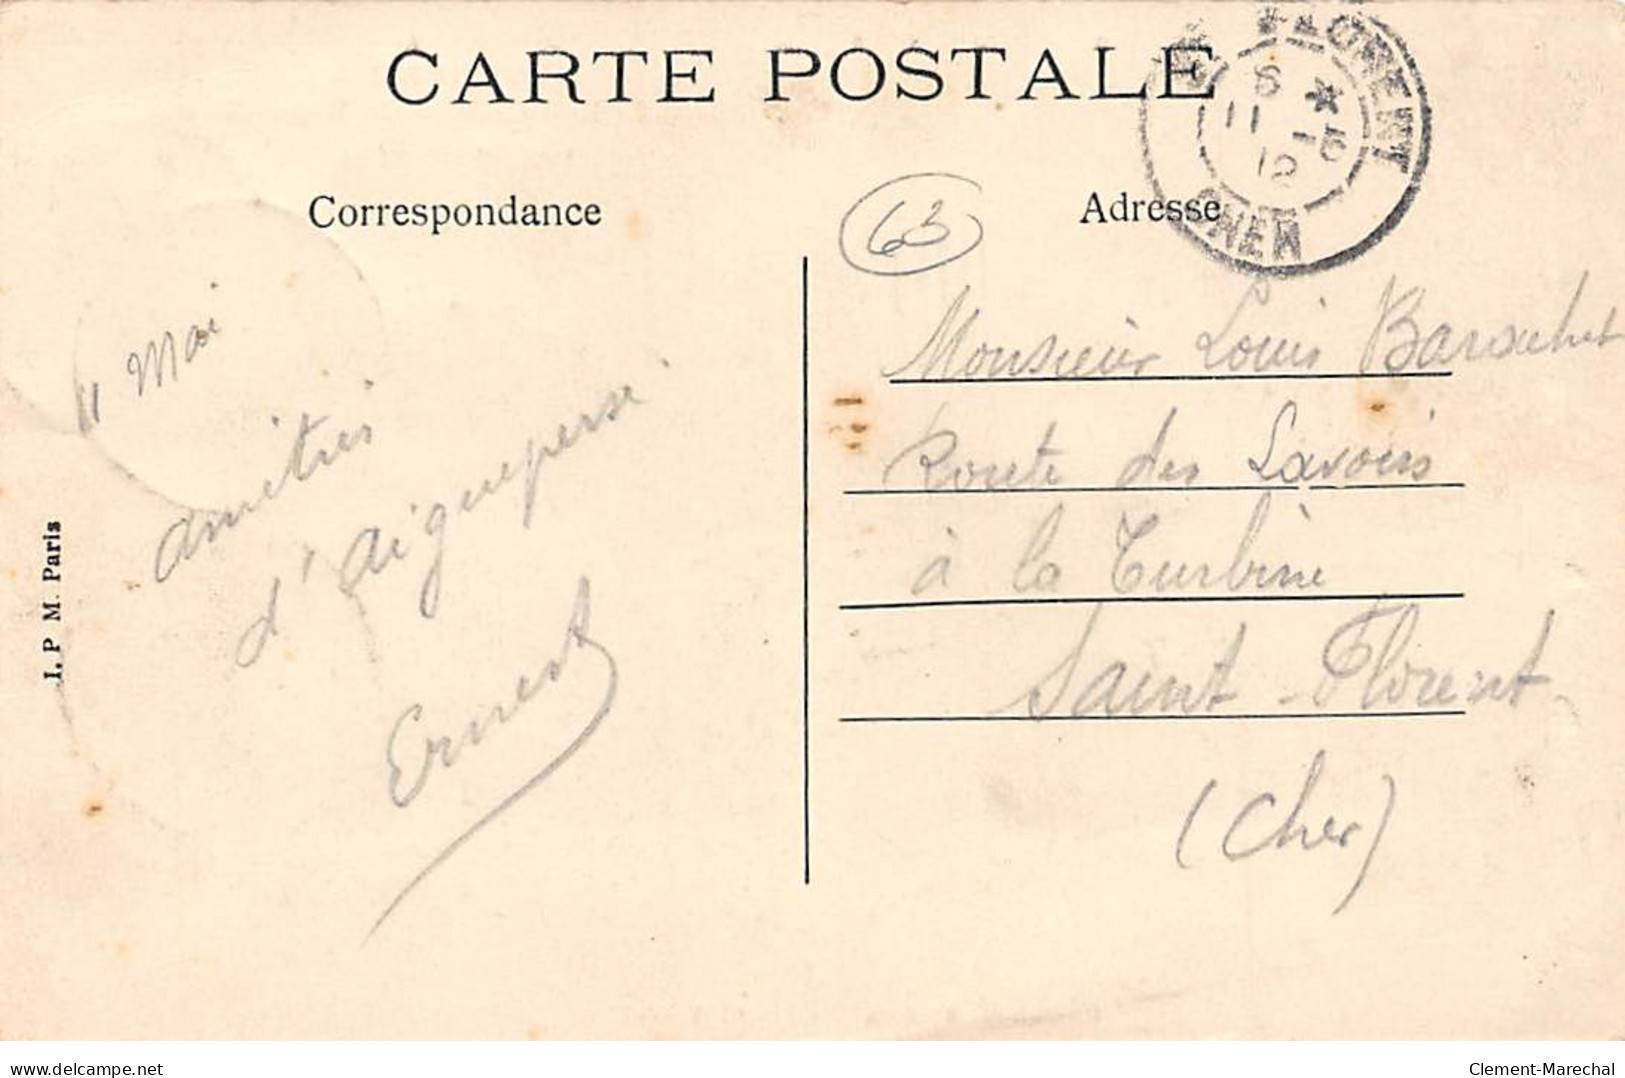 CARTE POSTALE
Correspondance
Adresse
63
FLORENT
CHER
6 *
11 -5
12
11 Mai
amitiés
d'Aigueperse
Ernest
I. P. M. Paris
Monsieur Louis
Route des Lavoirs
à la Turbine
Saint-Florent
(Cher)
delcampe.net
Clement-Marechal